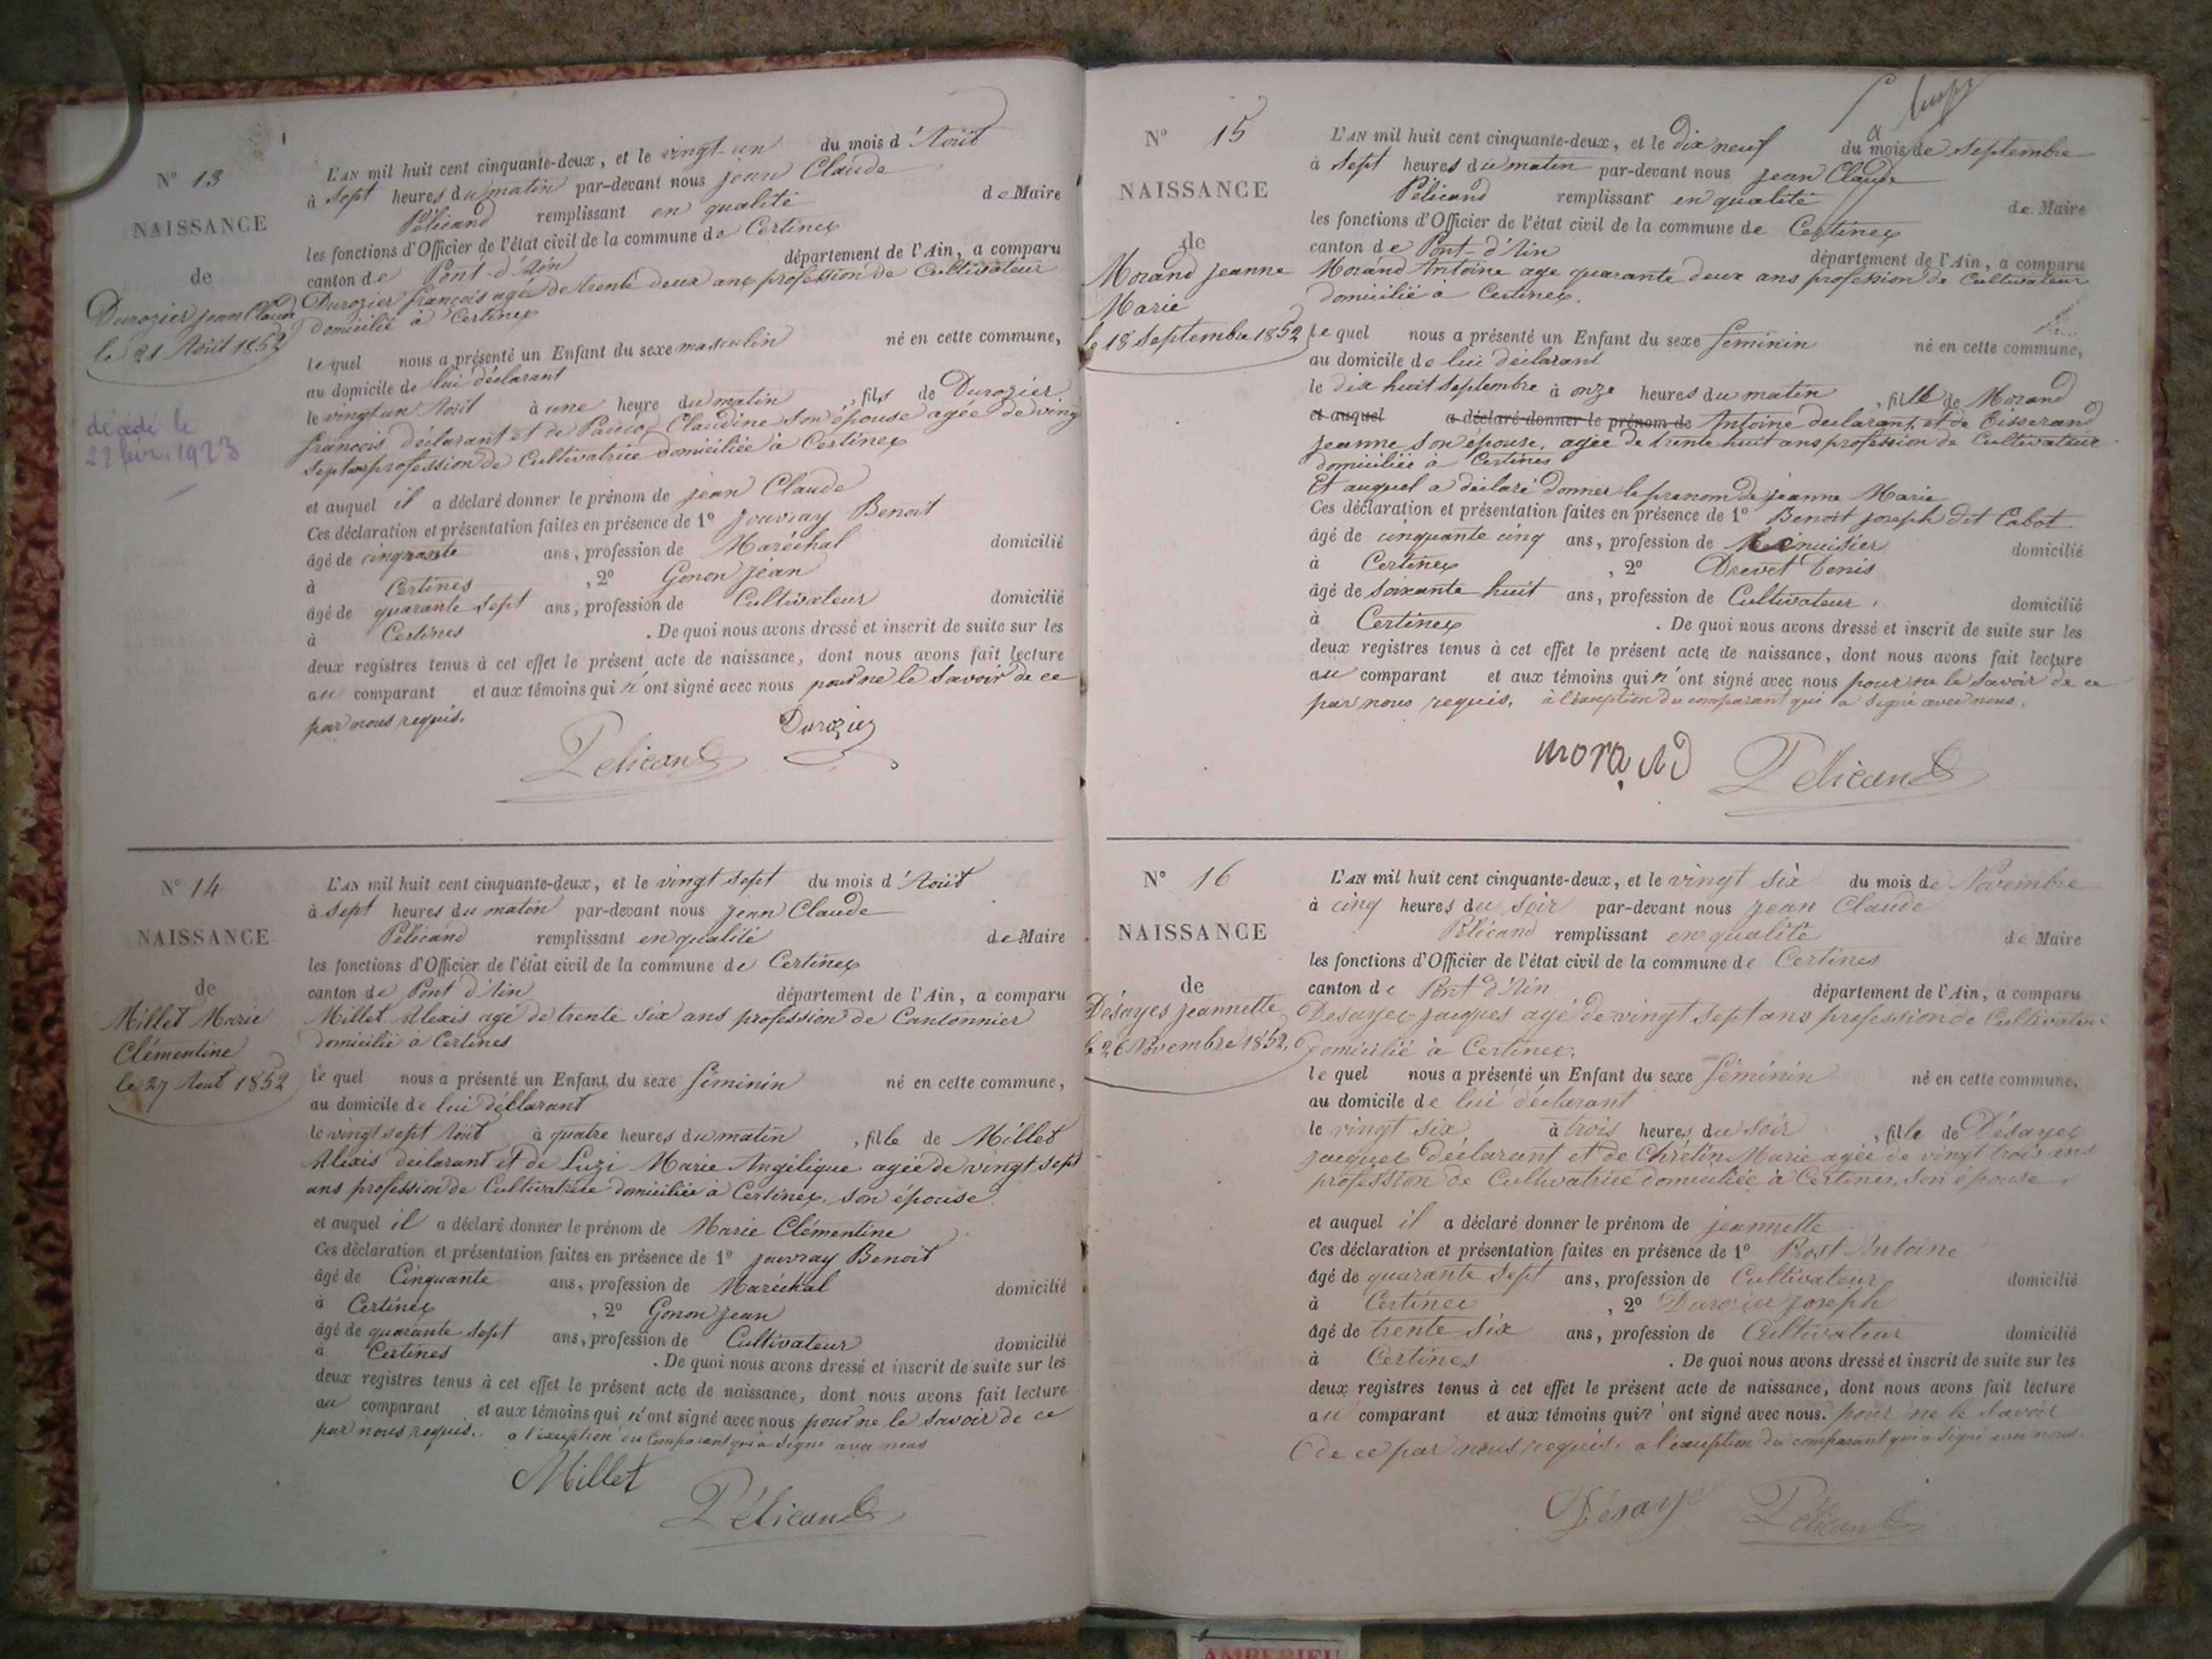 N° 13
NAISSANCE
de
Durozier jean Claude
le 21 Août 1852
décédé le
22 févr. 1923
L'AN mil huit cent cinquante-deux, et le vingt-un du mois d'Août
à sept heures du matin par-devant nous jean Claude
Pélicand remplissant en qualité de Maire
les fonctions d'Officier de l'état civil de la commune de Certines
canton de Pont-d'Ain département de l'Ain, a comparu
Durozier françois agé de trente deux ans profession de Cultivateur
domicilié à Certines
le quel nous a présenté un Enfant du sexe masculin né en cette commune,
au domicile de lui déclarant
le vingt un Août à une heure du matin, fils de Durozier
françois déclarant et de Claudine son épouse agée de vingt
sept ans profession de Cultivatrice domiciliée à Certines
et auquel il a déclaré donner le prénom de jean Claude
Ces déclaration et présentation faites en présence de 1° jouvray Benoit
âgé de cinquante ans, profession de Maréchal domicilié
à Certines, 2° Gonon jean
âgé de quarante sept ans, profession de Cultivateur domicilié
à Certines. De quoi nous avons dressé et inscrit de suite sur les
deux registres tenus à cet effet le présent acte de naissance, dont nous avons fait lecture
au comparant et aux témoins qui n'ont signé avec nous pour ne le savoir de ce
par nous requis.
Durozier
Pelicand
N° 14
NAISSANCE
de
Millet Marie
Clémentine
le 27 Aout 1852
L'AN mil huit cent cinquante-deux, et le vingt sept du mois d'Août
à sept heures du matin par-devant nous jean Claude
Pélicand remplissant en qualité de Maire
les fonctions d'Officier de l'état civil de la commune de Certines
canton de Pont d'Ain département de l'Ain, a comparu
Millet Alexis agé de trente six ans profession de Cantonnier
domicilié a Certines
le quel nous a présenté un Enfant du sexe féminin né en cette commune,
au domicile de lui déclarant
le vingt sept Août à quatre heures du matin, fille de Millet
Alexis déclarant et de Luzi Marie Angélique agée de vingt sept
ans profession de Cultivatrice domiciliée à Certines, son épouse
et auquel il a déclaré donner le prénom de Marie Clémentine
Ces déclaration et présentation faites en présence de 1° jouvray Benoit
âgé de Cinquante ans, profession de Maréchal domicilié
à Certines, 2° Gonon jean
âgé de quarante sept ans, profession de Cultivateur domicilié
à Certines. De quoi nous avons dressé et inscrit de suite sur les
deux registres tenus à cet effet le présent acte de naissance, dont nous avons fait lecture
au comparant et aux témoins qui n'ont signé avec nous pour ne le savoir de ce
par nous requis. a l'exception du Comparant qui a signé avec nous
Millet
Pélicand
N° 15
NAISSANCE
de
Morand jeanne
Marie
le 18 Septembre 1852
L'AN mil huit cent cinquante-deux, et le dix neuf du mois de Septembre
à sept heures du matin par-devant nous jean Claude
Pélicand remplissant en qualité de Maire
les fonctions d'Officier de l'état civil de la commune de Certines
canton de Pont-d'Ain département de l'Ain, a comparu
Morand Antoine age quarante deux ans profession de Cultivateur
domicilié à Certines.
le quel nous a présenté un Enfant du sexe féminin né en cette commune,
au domicile de lui déclarant
le dix huit Septembre à onze heures du matin, fille de Morand
et auquel a déclaré donner le prénom de Antoine déclarant, et de Tisserand
jeanne son épouse, agée de trente huit ans profession de Cultivateur
domiciliée à Certines
Et auquel a déclaré donner le prenom de jeanne Marie
Ces déclaration et présentation faites en présence de 1° Benoit joseph dit Cabot
âgé de cinquante cinq ans, profession de Menuisier domicilié
à Certines, 2° Drevet Denis
âgé de soixante huit ans, profession de Cultivateur, domicilié
à Certines. De quoi nous avons dressé et inscrit de suite sur les
deux registres tenus à cet effet le présent acte de naissance, dont nous avons fait lecture
au comparant et aux témoins qui n'ont signé avec nous pour ne le savoir de ce
par nous requis, à l'exception du comparant qui a signé avec nous.
morand
Pélicand
N° 16
NAISSANCE
de
Désayes jeannette
le 26 Novembre 1852
L'AN mil huit cent cinquante-deux, et le vingt six du mois de Novembre
à cinq heures du soir par-devant nous jean Claude
Pélicand remplissant en qualité de Maire
les fonctions d'Officier de l'état civil de la commune de Certines
canton de Pont d'Ain département de l'Ain, a comparu
Desayes jacques agé de vingt sept ans profession de Cultivateur
domicilié à Certines.
le quel nous a présenté un Enfant du sexe féminin né en cette commune,
au domicile de lui déclarant
le vingt six à trois heures du soir, fille de Désayes
jacques déclarant et de Chrétin Marie agée de vingt trois ans
profession de Cultivatrice domiciliée à Certines, son épouse
et auquel il a déclaré donner le prénom de jeannette
Ces déclaration et présentation faites en présence de 1° Prost Antoine
âgé de quarante sept ans, profession de Cultivateur domicilié
à Certines, 2° Durozier joseph
âgé de trente six ans, profession de Cultivateur domicilié
à Certines. De quoi nous avons dressé et inscrit de suite sur les
deux registres tenus à cet effet le présent acte de naissance, dont nous avons fait lecture
au comparant et aux témoins qui n'ont signé avec nous. pour ne le savoir
de ce par nous requis. a l'exception du comparant qui a signé avec nous.
Désaye
Pélicand
AMBERIEU